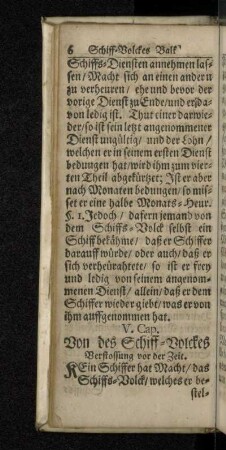 6 Schiff-Volckes Balk
Schiffs-Diensten annehmen las-
sen/ Macht sich an einen andern
zu verheuren/ ehe und bevor der
vorige Dienst zu Ende/ und er da-
von ledig ist. Thut einer darwie-
der/ so ist sein letzt angenommener
Dienst ungültig/ und der Lohn/
welchen er in seinem ersten Dienst
bedungen hat/ wird ihm zum vier-
ten Theil abgekürtzet; Ist er aber
nach Monaten bedungen/ so mis-
set er eine halbe Monats-Heur.
§. 1. Jedoch/ dafern jemand von
dem Schiffs-Volck selbst ein
Schiff bekähme/ daß er Schiffer
darauff würde/ oder auch/ daß er
sich verheürahtete/ so ist er frey
und ledig von seinem angenom-
menen Dienst/ allein/ daß er dem
Schiffer wieder giebt/ was er von
ihm auffgenommen hat.
V. Cap.
Von des Schiff-Volckes
Verstossung vor der Zeit.
KEin Schiffer hat Macht/ das
Schiffs-Volck/ welches er be-
stel-